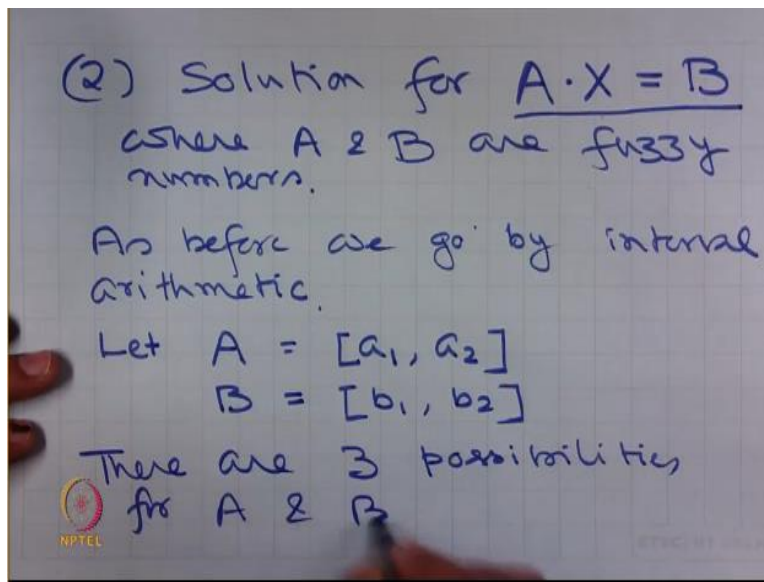 (2) Solution for A·X = B
where A & B are fuzzy
numbers.
As before we go by interval
arithmetic.
Let A = [a₁, a₂]
B = [b₁, b₂]
There are 3 possibilities
for A & B
NPTEL